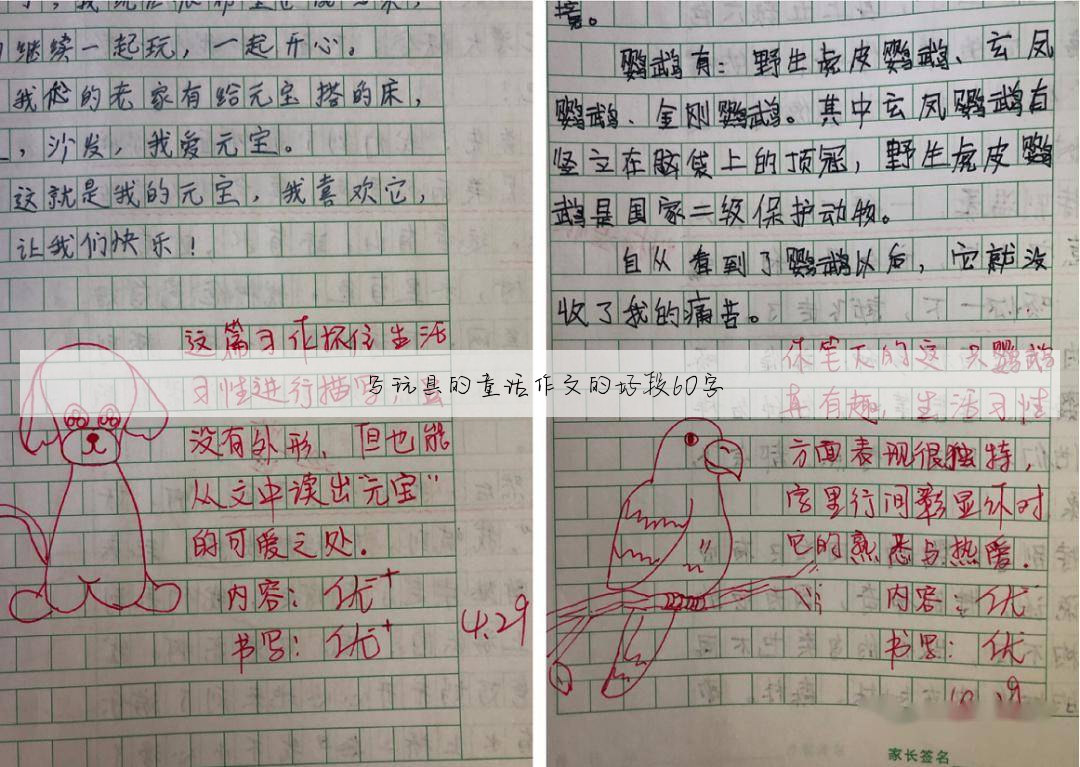 继续一起玩，一起开心。
我爸的老家有给元宝搭的床，
，沙发，我爱元宝。
这就是我的元宝，我喜欢它，
让我们快乐！
这篇习作抓住生活
习性进行描写，虽
没有外形，但也能
从文中读出“元宝”
的可爱之处.
内容：优+
书写：优+
4.29
写玩具的童话作文的好段60字
境。
鹦鹉有：野生虎皮鹦鹉、玄凤
鹦鹉、金刚鹦鹉。其中玄凤鹦鹉有
竖立在脑袋上的顶冠，野生虎皮鹦
鹉是国家二级保护动物。
自从看到了鹦鹉以后，它就没
收了我的痛苦。
你笔下的这只鹦鹉
真有趣，生活习性
方面表现很独特，
字里行间彰显你对
它的熟悉与热爱.
内容：优
书写：优
家长签名